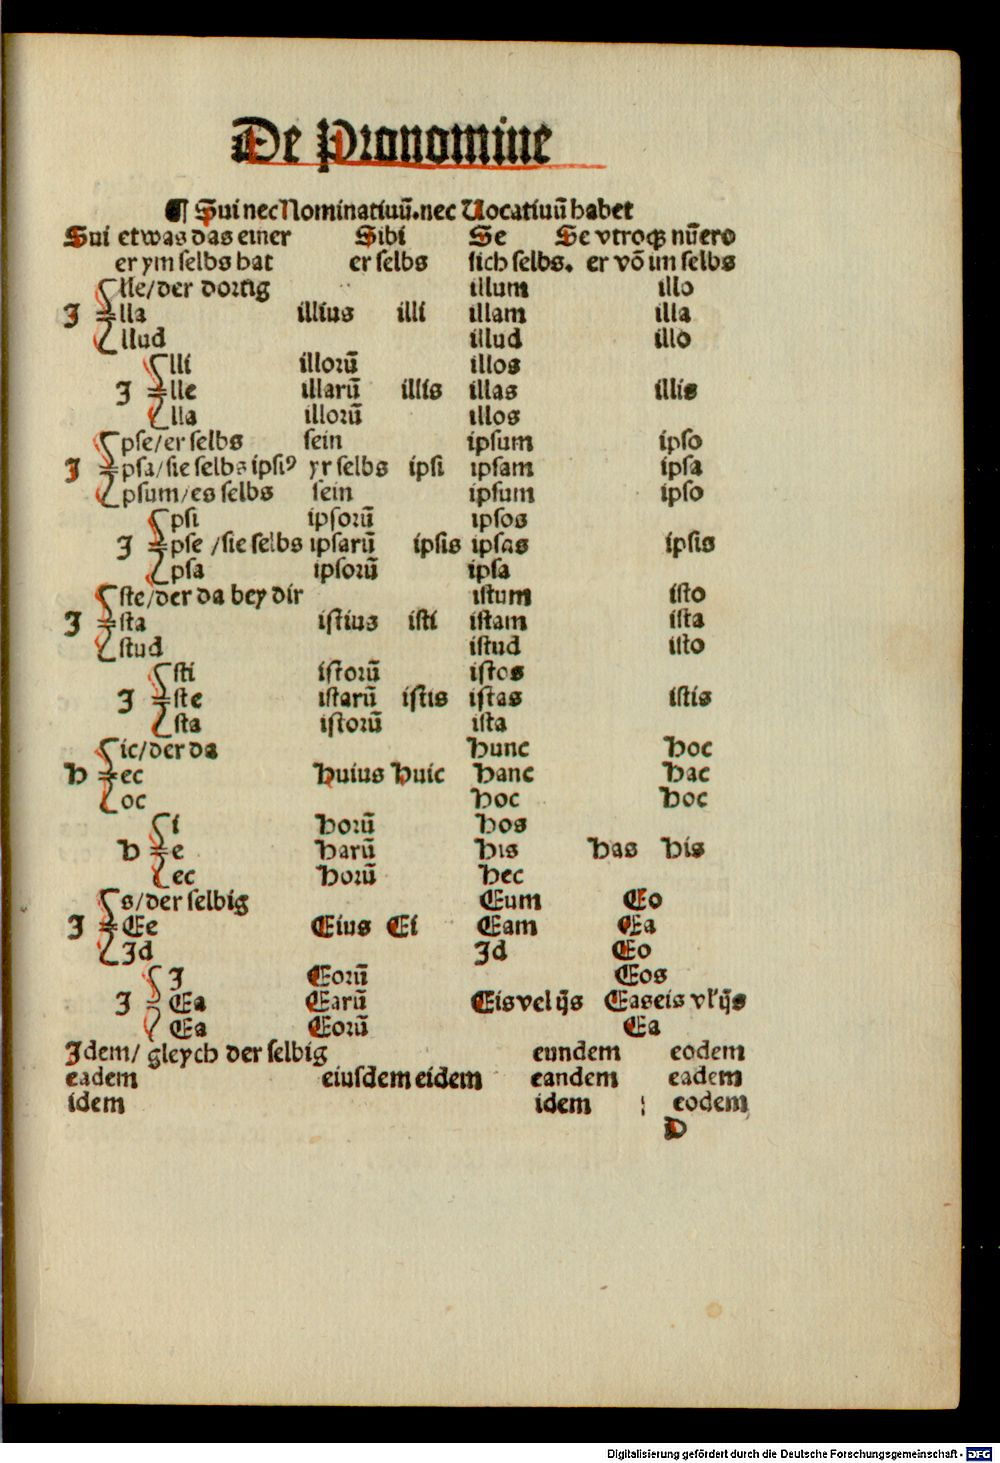 De Pronomine
¶ Sui nec Nominatiuū. nec Uocatiuū habet
Sui etwas das einer Sibi Se Se vtroqꝫ nūero
er ym selbs hat er selbs sich selbs. er vō im selbs
lle/der dortig illum illo
I lla illius illi illam illa
llud illud illo
lli illorū illos
I lle illarū illis illas illis
lla illorū illos
pse/er selbs sein ipsum ipso
I psa/sie selbs ipsiꝰ yr selbs ipsi ipsam ipsa
psum/es selbs sein ipsum ipso
psi ipsorū ipsos
I pse /sie selbs ipsarū ipsis ipsas ipsis
psa ipsorū ipsa
ste/der da bey dir istum isto
I sta istius isti istam ista
stud istud isto
sti istorū istos
I ste istarū istis istas istis
sta istorū ista
ic/der da hunc hoc
h ec huius huic hanc hac
oc hoc hoc
i horū hos
h e harū his has his
ec horū hec
s/der selbig Eum Eo
I Ee Eius Ei Eam Ea
Id Id Eo
I Eorū Eos
I Ea Earū Eis vel ijs Eas eis vl' ijs
Ea Eorū Ea
Idem/ gleych der selbig eundem eodem
eadem eiusdem eidem eandem eadem
idem idem eodem
D
Digitalisierung gefördert durch die Deutsche Forschungsgemeinschaft - DFG